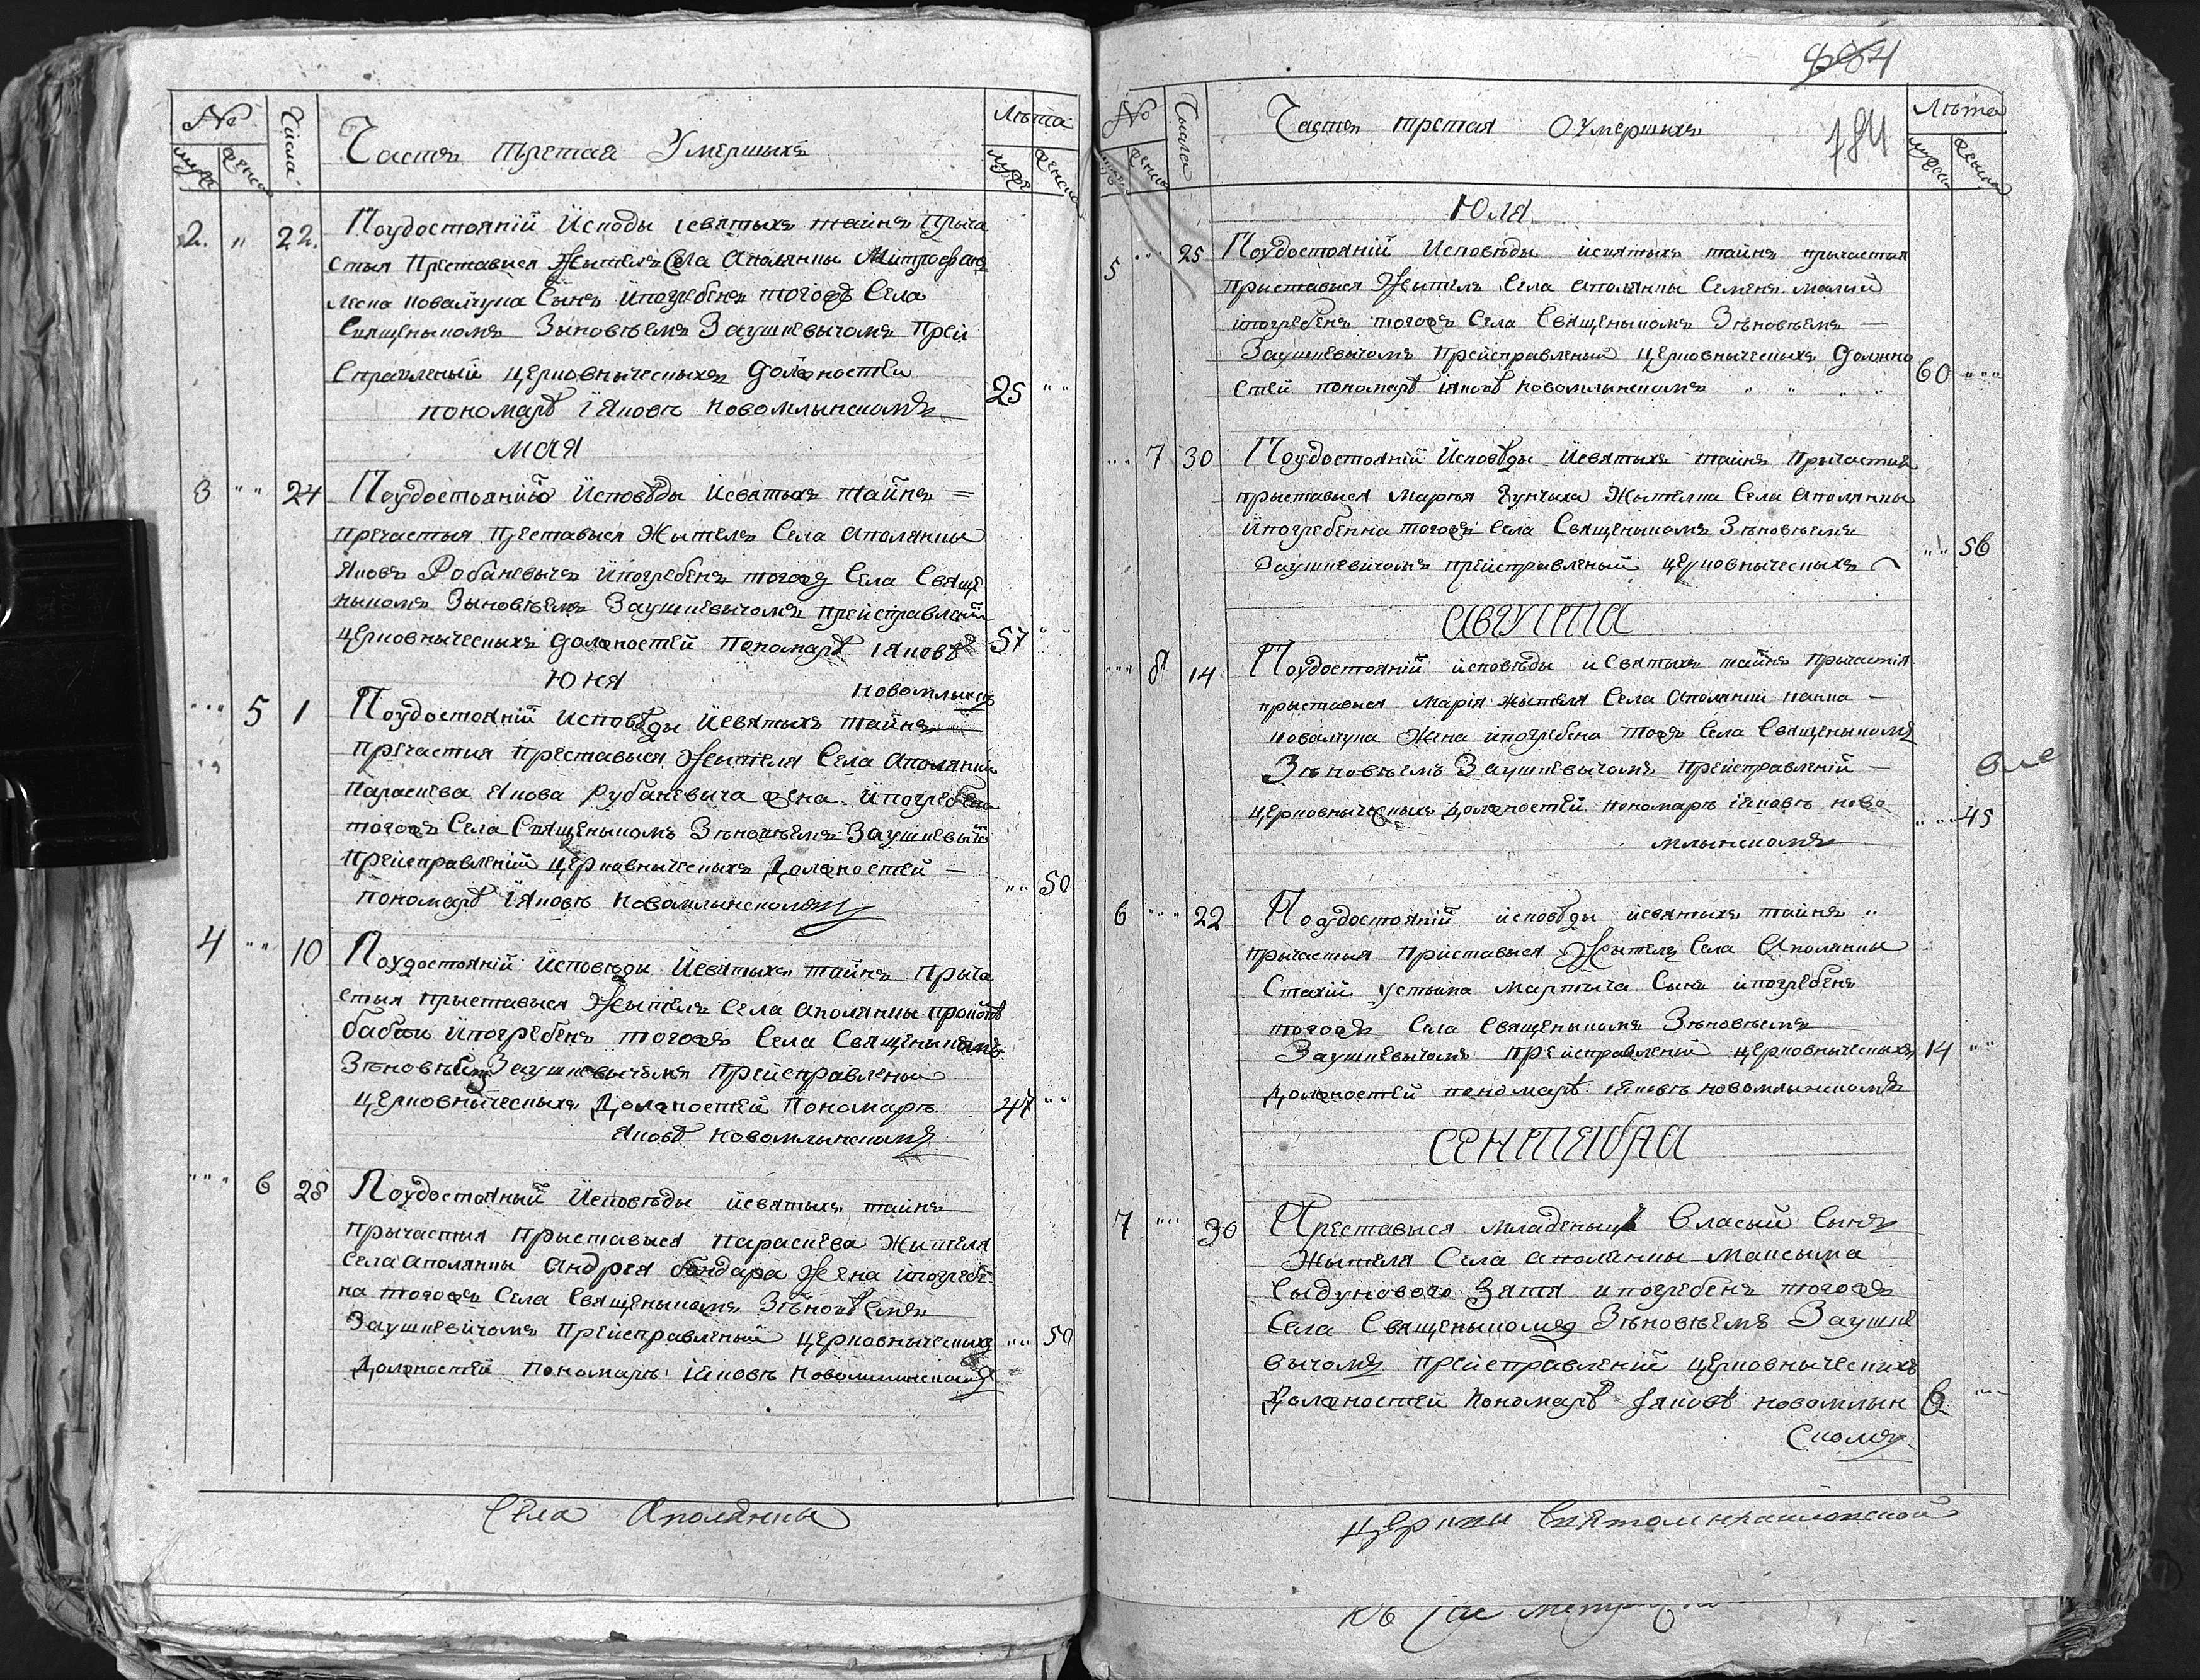 №
Числа
Часть третая Умершихъ
Лѣта
муж
женск
муж
женск
2. " 22. Поудостояній Исповѣды ісвятыхъ тайнъ Прыча
стыя Преставися Жытель Села Аполянкы Митрофанъ
Леска Ковалчука Сынъ ипогребенъ тогожъ Села
Священыкомъ Зыновѣемъ Заушкевычомъ Преи
справленый церковныческыхъ должностей 25 " "
пономарѣ Іяковъ Новомлынскомъ
мая
3 " " 24 Поудостояний Исповѣды Исвятыхъ тайнъ
пречастыя преставыся Жытель Села Аполянкы
Яковъ Робаневычъ ипогребенъ тогожъ Села Свяще
ныкомъ Зыновѣемъ Заушкевычомъ преисправленый
церковныческыхъ должностей пономарѣ Іяковѣ 57 " "
Новомлынскомъ
Юня
" " " 5 1 Поудостояній исповѣды исвятыхъ тайнъ
Пречастыя Преставыся Жытеля Села Аполянки
Параскева Якова Рубаневича жена ипогребена
тогожъ Села Священыкомъ Зѣновѣемъ Заушкевычо
Преисправленій церковныческыхъ Должностей
пономарѣ Іяковъ Новомлынскомъ " " 50
4 " " 10 Поудостояній Исповѣды Исвятыхъ тайнъ Прыча
стыя прыставыся Жытель Села Аполянкы Прокопѣ
бабакъ ипогребенъ тогожъ Села Священыкомъ
Зѣновѣемъ Заушкевычомъ Преисправленый
церковныческыхъ Должностей Пономаръ 47 " "
Яковѣ Новомлынскомъ
" " " 6 28 Поудостояный Исповѣды исвятыхъ тайнъ
прычастыя Прыставыся Параскева Жытеля
Села Аполянкы Андрея бондара Жена ипогребе
на тогожъ Села Священыкомъ Зѣновѣемъ
Заушкевичомъ Преисправленый церковныческыхъ " " 50
Должностей пономаръ Іяковъ Новомлинскомъ
Села Аполянкы
184
№
Числа
Часть третая О Умершихъ
Лѣта
женск
Юля
5 " " 25 Поудостояній Исповѣды исвятыхъ тайнъ прычастыя
Прыставыся Жытель Села Аполянкы Семенъ малый
ипогребенъ тогожъ Села Священыкомъ Зѣновѣемъ
Заушкевычомъ Преисправленый церковныческыхъ должно
стей пономарѣ Іяковѣ Новомлынскомъ " " " " 60 " " "
" " 7 30 Поудостояній Исповѣды Исвятыхъ тайнъ Прычастыя
прыставыся Марѳа Жытелка Села Аполянкы
ипогребенна тогожъ Села Священыкомъ Зѣновѣемъ
Заушкевичомъ преисправленый церковныческыхъ " " 56
АВГУСТА
" " " 8 14 Поудостояній исповѣды и Святыхъ тайнъ Прычастія
прыставыся Марія жытеля Села Аполянки
Ковалчука Жена ипогребена тожъ Села Священыкомъ
Зѣновѣемъ Заушкевычомъ Преисправленій
церковныческыхъ должностей пономаръ Іяковъ ново " " " 45
млынскомъ
6 " " " 22 Поудостояній исповѣды исвятыхъ тайнъ "
прычастыя Приставыся Жытель Села Аполянкы
Стахій Устыма Мартыча Сынъ ипогребенъ
тогожъ Села Священыкомъ Зѣновѣемъ
Заушкевычомъ преисправленый церковныческыхъ 14 " "
Должностей пономарѣ Іяковъ новомлынскомъ
СЕНТЯБРА
7 " " " 30 Преставыся младеныцъ Власый Сынъ
Жытеля Села Аполянкы Максыма
Сыдунового Зятя ипогребенъ тогожъ
Села Священыкомъ Зѣновѣемъ Заушке
вычомъ преисправленій церковныческихъ
Должностей Пономарѣ Іяковѣ новомлын 6 " "
скомъ
церкви Святомихаиловской